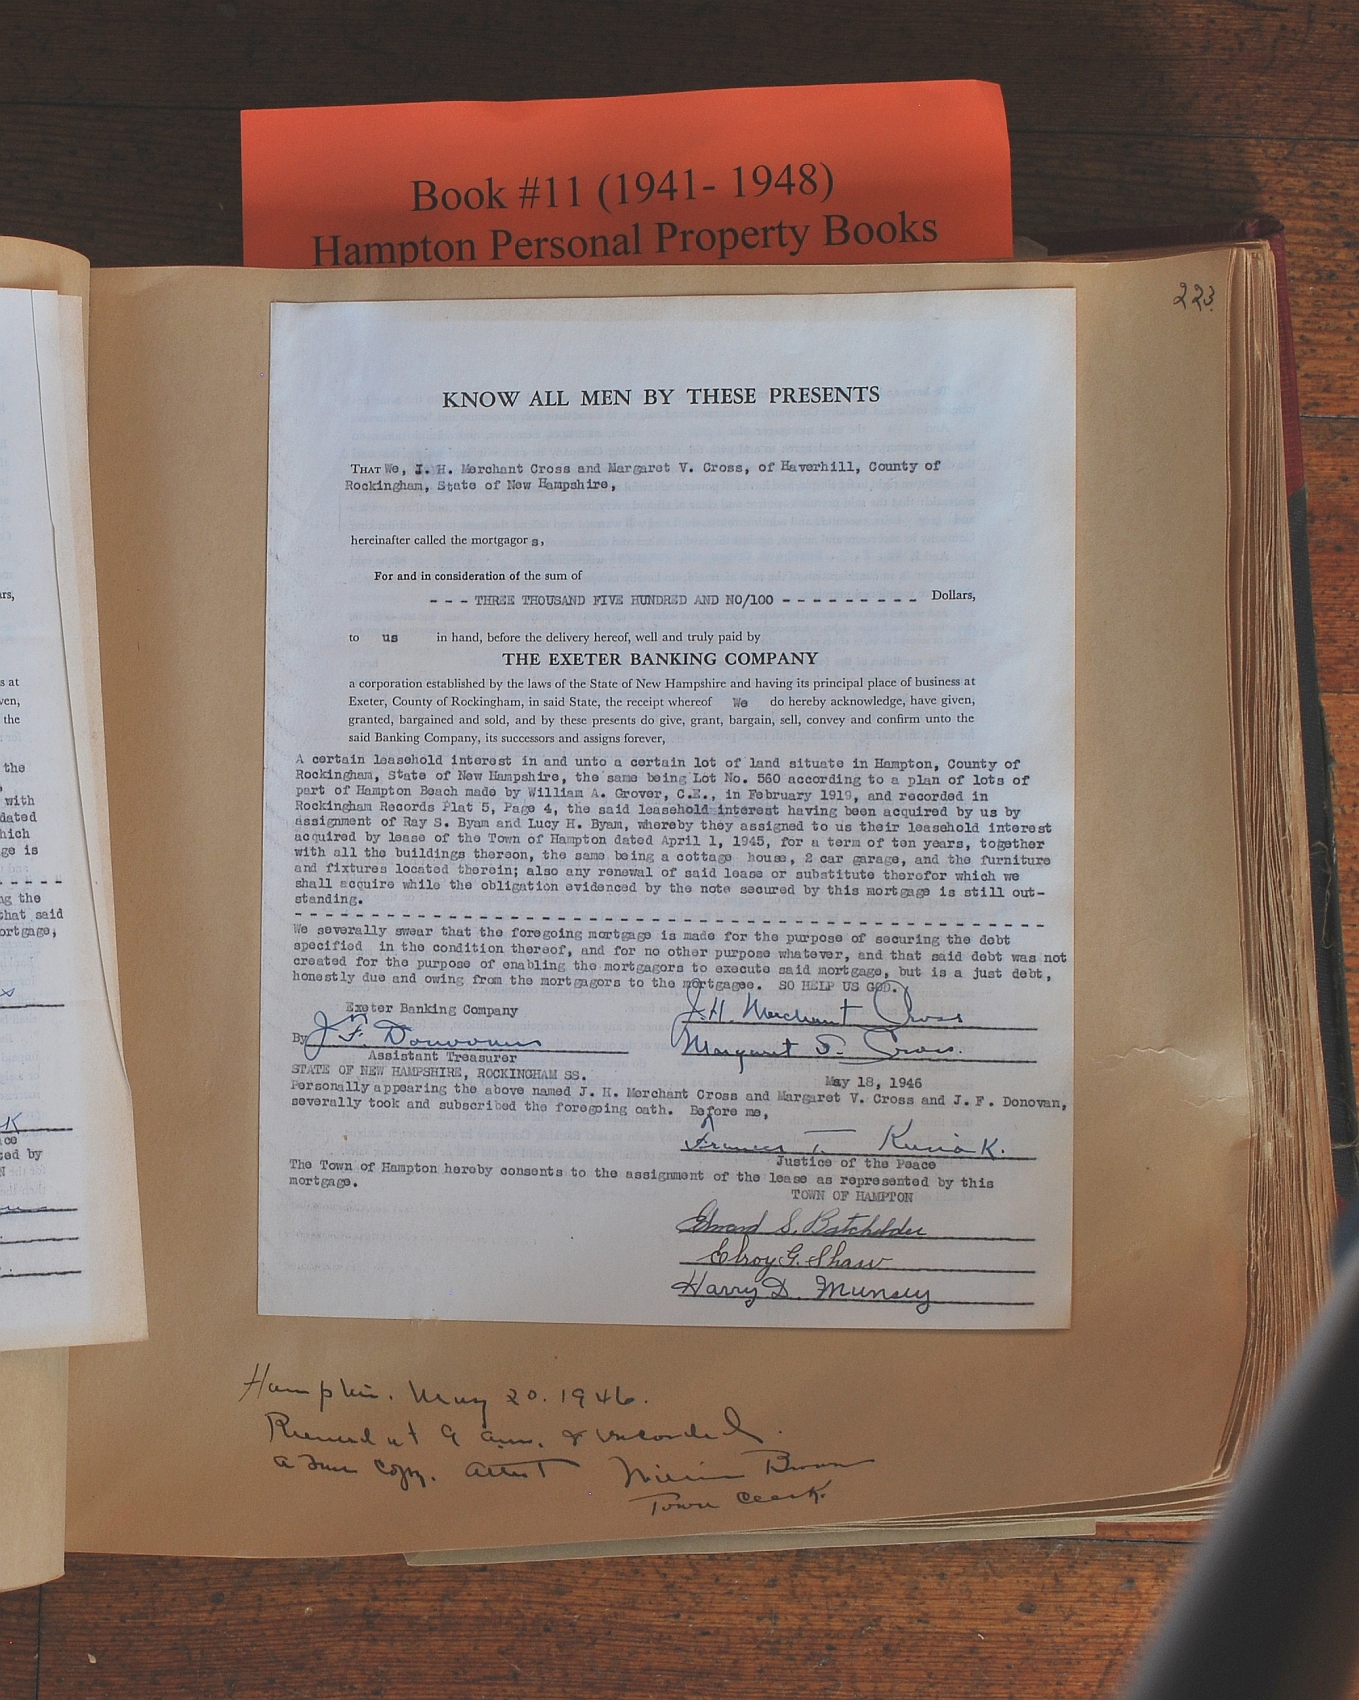 Book #11 (1941- 1948)
Hampton Personal Property Books
223
KNOW ALL MEN BY THESE PRESENTS
THAT We, J. H. Merchant Cross and Margaret V. Cross, of Haverhill, County of
Rockingham, State of New Hampshire,
hereinafter called the mortgagor s,
For and in consideration of the sum of
- - - THREE THOUSAND FIVE HUNDRED AND NO/100 - - - - - - - - - - Dollars,
to us in hand, before the delivery hereof, well and truly paid by
THE EXETER BANKING COMPANY
a corporation established by the laws of the State of New Hampshire and having its principal place of business at
Exeter, County of Rockingham, in said State, the receipt whereof We do hereby acknowledge, have given,
granted, bargained and sold, and by these presents do give, grant, bargain, sell, convey and confirm unto the
said Banking Company, its successors and assigns forever,
A certain leasehold interest in and unto a certain lot of land situate in Hampton, County of
Rockingham, State of New Hampshire, the same being Lot No. 560 according to a plan of lots of
part of Hampton Beach made by William A. Grover, C.E., in February 1919, and recorded in
Rockingham Records Plat 5, Page 4, the said leasehold interest having been acquired by us by
assignment of Ray S. Byam and Lucy H. Byam, whereby they assigned to us their leasehold interest
acquired by lease of the Town of Hampton dated April 1, 1945, for a term of ten years, together
with all the buildings thereon, the same being a cottage house, 2 car garage, and the furniture
and fixtures located therein; also any renewal of said lease or substitute therefor which we
shall acquire while the obligation evidenced by the note secured by this mortgage is still out-
standing.
We severally swear that the foregoing mortgage is made for the purpose of securing the debt
specified in the condition thereof, and for no other purpose whatever, and that said debt was not
created for the purpose of enabling the mortgagors to execute said mortgage, but is a just debt,
honestly due and owing from the mortgagors to the mortgagee. SO HELP US GOD.
Exeter Banking Company J. H. Merchant Cross
By J. F. Donovan Margaret V. Cross.
Assistant Treasurer
STATE OF NEW HAMPSHIRE, ROCKINGHAM SS. May 18, 1946
Personally appearing the above named J. H. Merchant Cross and Margaret V. Cross and J. F. Donovan,
severally took and subscribed the foregoing oath. Before me,
Frances T.
Justice of the Peace
The Town of Hampton hereby consents to the assignment of the lease as represented by this
mortgage.
TOWN OF HAMPTON
Edward S. Batchelder
Elroy G. Shaw
Harry D. Munsey
Hampton. May 20. 1946.
Received at 9 a.m. & recorded.
a true Copy. Attest William Brown
Town Clerk.